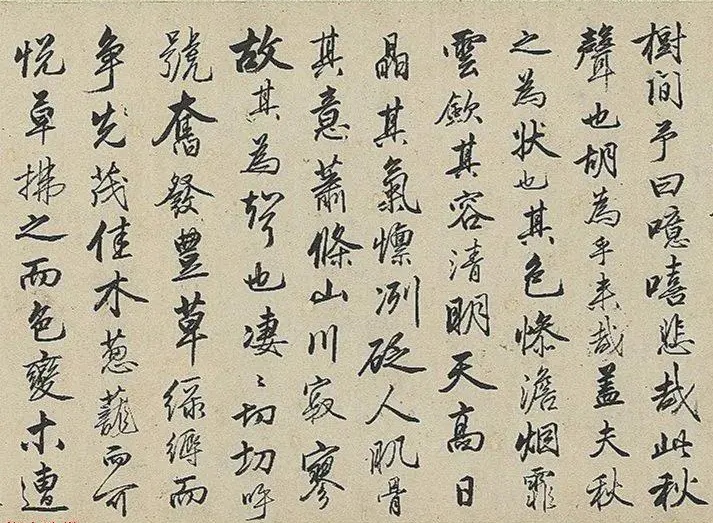 樹間予曰噫嘻悲哉此秋
聲也胡為乎来哉蓋夫秋
之為状也其色惨澹烟霏
雲歛其容清明天高日
晶其氣懍冽砭人肌骨
其意蕭條山川寂寥
故其為聲也凄〻切切呼
號奮發豐草緑縟而
争先茂佳木葱蘢而可
悦草拂之而色變木遭